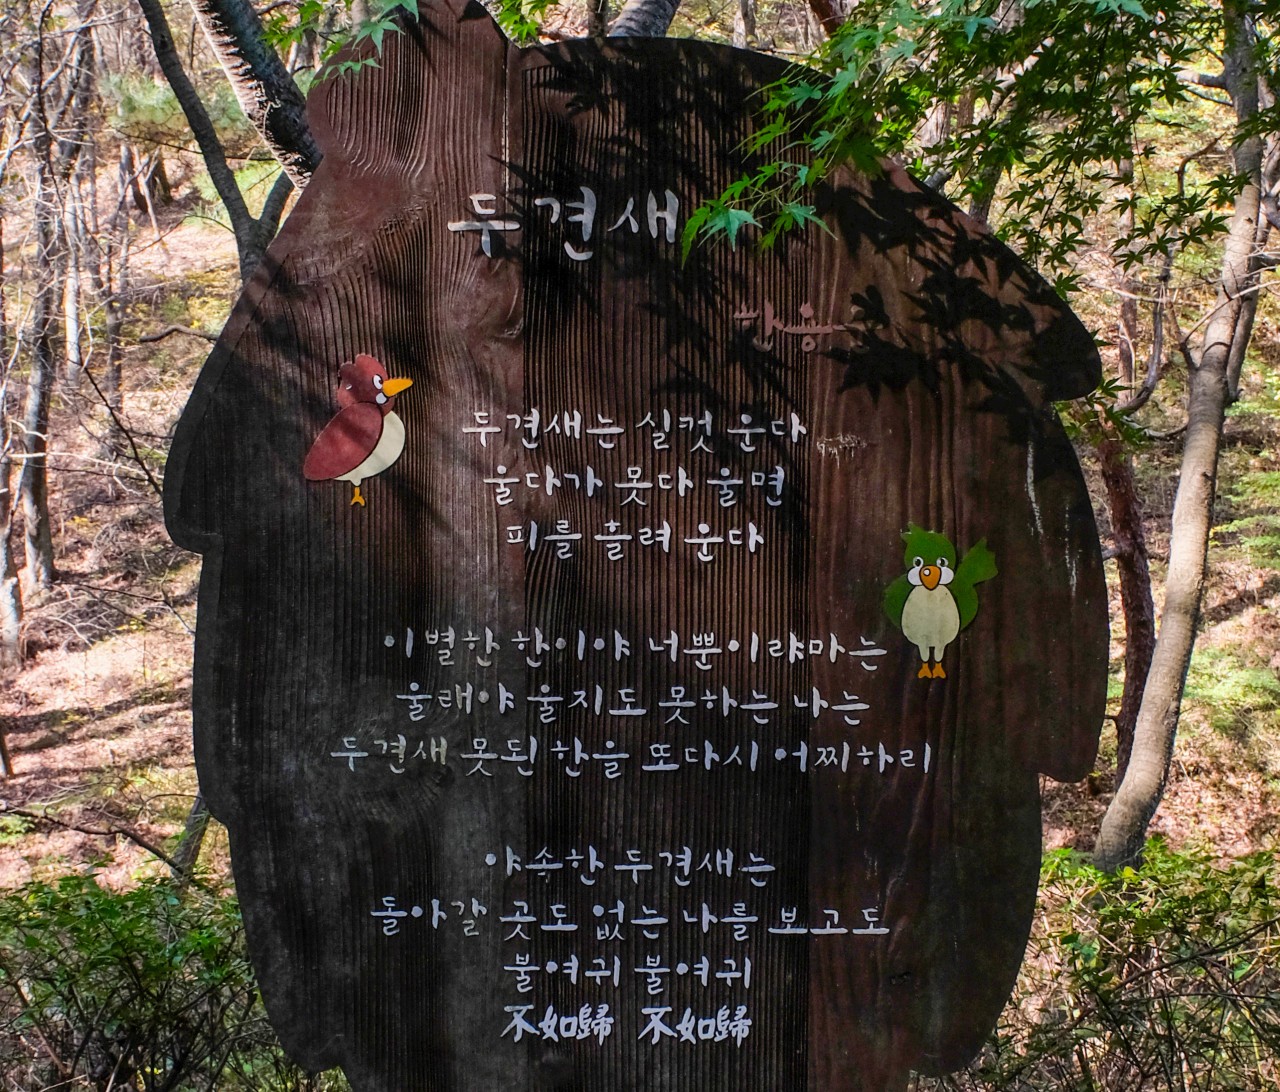 두견새
한용
두견새는 실컷 운다
울다가 못다 울면
피를 흘려 운다
이별한 한이야 너뿐이랴마는
울래야 울지도 못하는 나는
두견새 못된 한을 또다시 어찌하리
야속한 두견새는
돌아갈 곳도 없는 나를 보고도
불여귀 불여귀
不如歸 不如歸